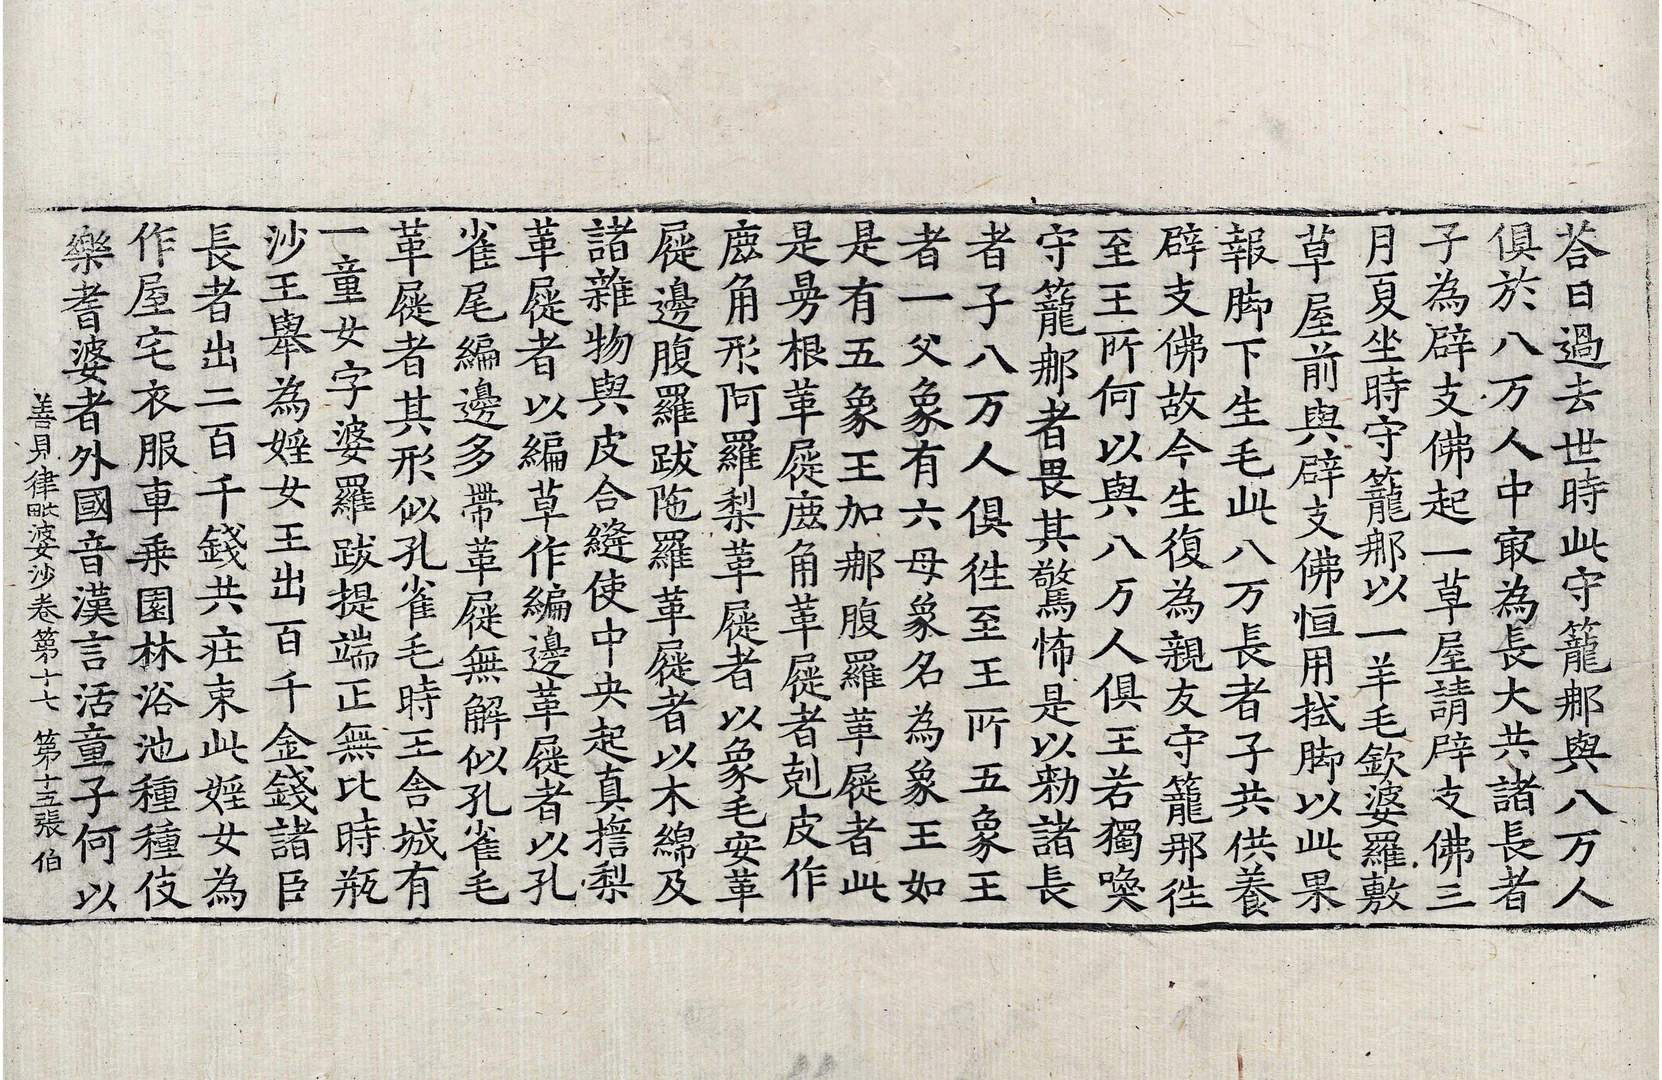 荅曰過去世時此守籠那與八万人
俱於八万人中㝡為長大共諸長者
子為辟支佛起一草屋請辟支佛三
月夏坐時守籠那以一羊毛欽婆羅敷
草屋前與辟支佛恒用拭脚以此果
報脚下生毛此八万長者子共供養
辟支佛故今生復為親友守籠那徃
至王所何以與八万人俱王若獨喚
守籠那者畏其驚怖是以勑諸長
者子八万人俱徃至王所五象王
者一父象有六母象名為象王如
是有五象王加那腹羅革屣者此
是㫄根革屣䴢角革屣者剋皮作
䴢角形阿羅梨革屣者以象毛安革
屣邊腹羅跋陁羅革屣者以木綿及
諸雜物與皮合縫使中央起真撦梨
革屣者以編草作編邊革屣者以孔
雀尾編邊多帶革屣無解似孔雀毛
革屣者其形似孔雀毛時王舎城有
一童女字婆羅跋提端正無比時瓶
沙王舉為婬女王出百千金錢諸臣
長者出二百千錢共莊束此婬女為
作屋宅衣服車乘園林浴池種種伎
樂耆婆者外國音漢言活童子何以
善見律毗婆沙卷第十七 第十五張 伯